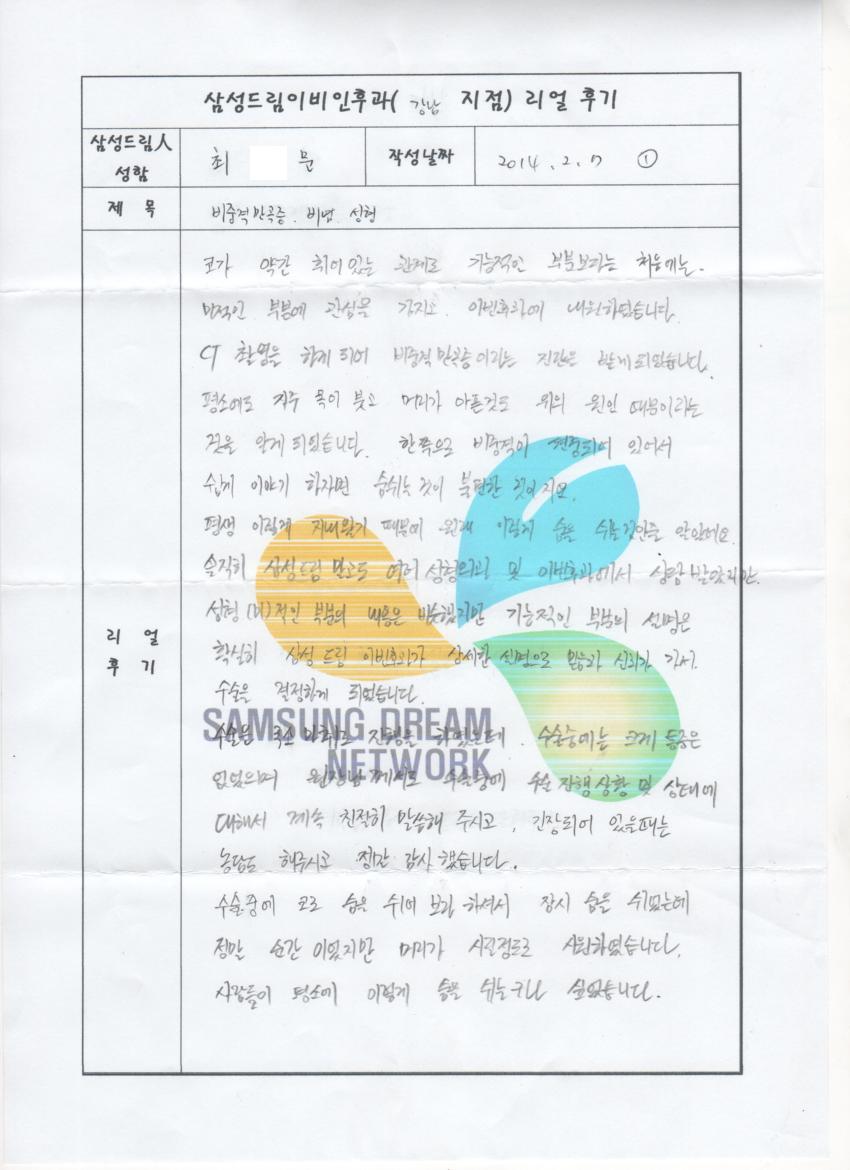 삼성드림이비인후과( 강남 지점) 리얼 후기
삼성드림人 성함
최 문
작성날짜
2014. 2. 7 ①
제 목
비중격만곡증. 비염. 성형
리 얼 후 기
코가 약간 휘어있는 관계로 기능적인 부분보다는 처음에는.
미적인 부분에 관심을 가지고 이빈후과에 내원하였습니다.
CT 촬영을 하게 되어 비중격만곡증이라는 진단을 받게되었습니다.
평소에도 자주 목이 붓고 머리가 아픈것도 위의 원인 때문이라는
것을 알게 되었습니다. 한쪽으로 비중격이 편중되어 있어서
쉽게 이야기 하자면 숨쉬는 것이 불편한 것이지요.
평생 이렇게 지내왔기 때문에 원래 이렇게 숨을 쉬는것인줄 알았어요.
솔직히 삼성드림 말고도 여러 성형외과 및 이빈후과에서 상담 받았지만.
성형(미)적인 부분의 내용은 비슷했지만 기능적인 부분의 설명은
확실히 삼성드림 이빈후과가 상세한 설명으로 믿음과 신뢰가 가서.
수술을 결정하게 되었습니다.
수술은 국소마취로 진행을 하였는데. 수술중에는 크게 통증은
없었으며 원장님께서도 수술중에 수술 진행상황 및 상태에
대해서 계속 친절히 말씀해 주시고, 긴장되어 있을때는
농담도 해주시고 정말 감사했습니다.
수술중에 코로 숨을 쉬어 보라 하셔서 잠시 숨을 쉬었는데
정말 순간 이었지만 머리가 시릴정도로 시원하였습니다.
사람들이 평소에 이렇게 숨을 쉬는구나 싶었습니다.
SAMSUNG DREAM
NETWORK